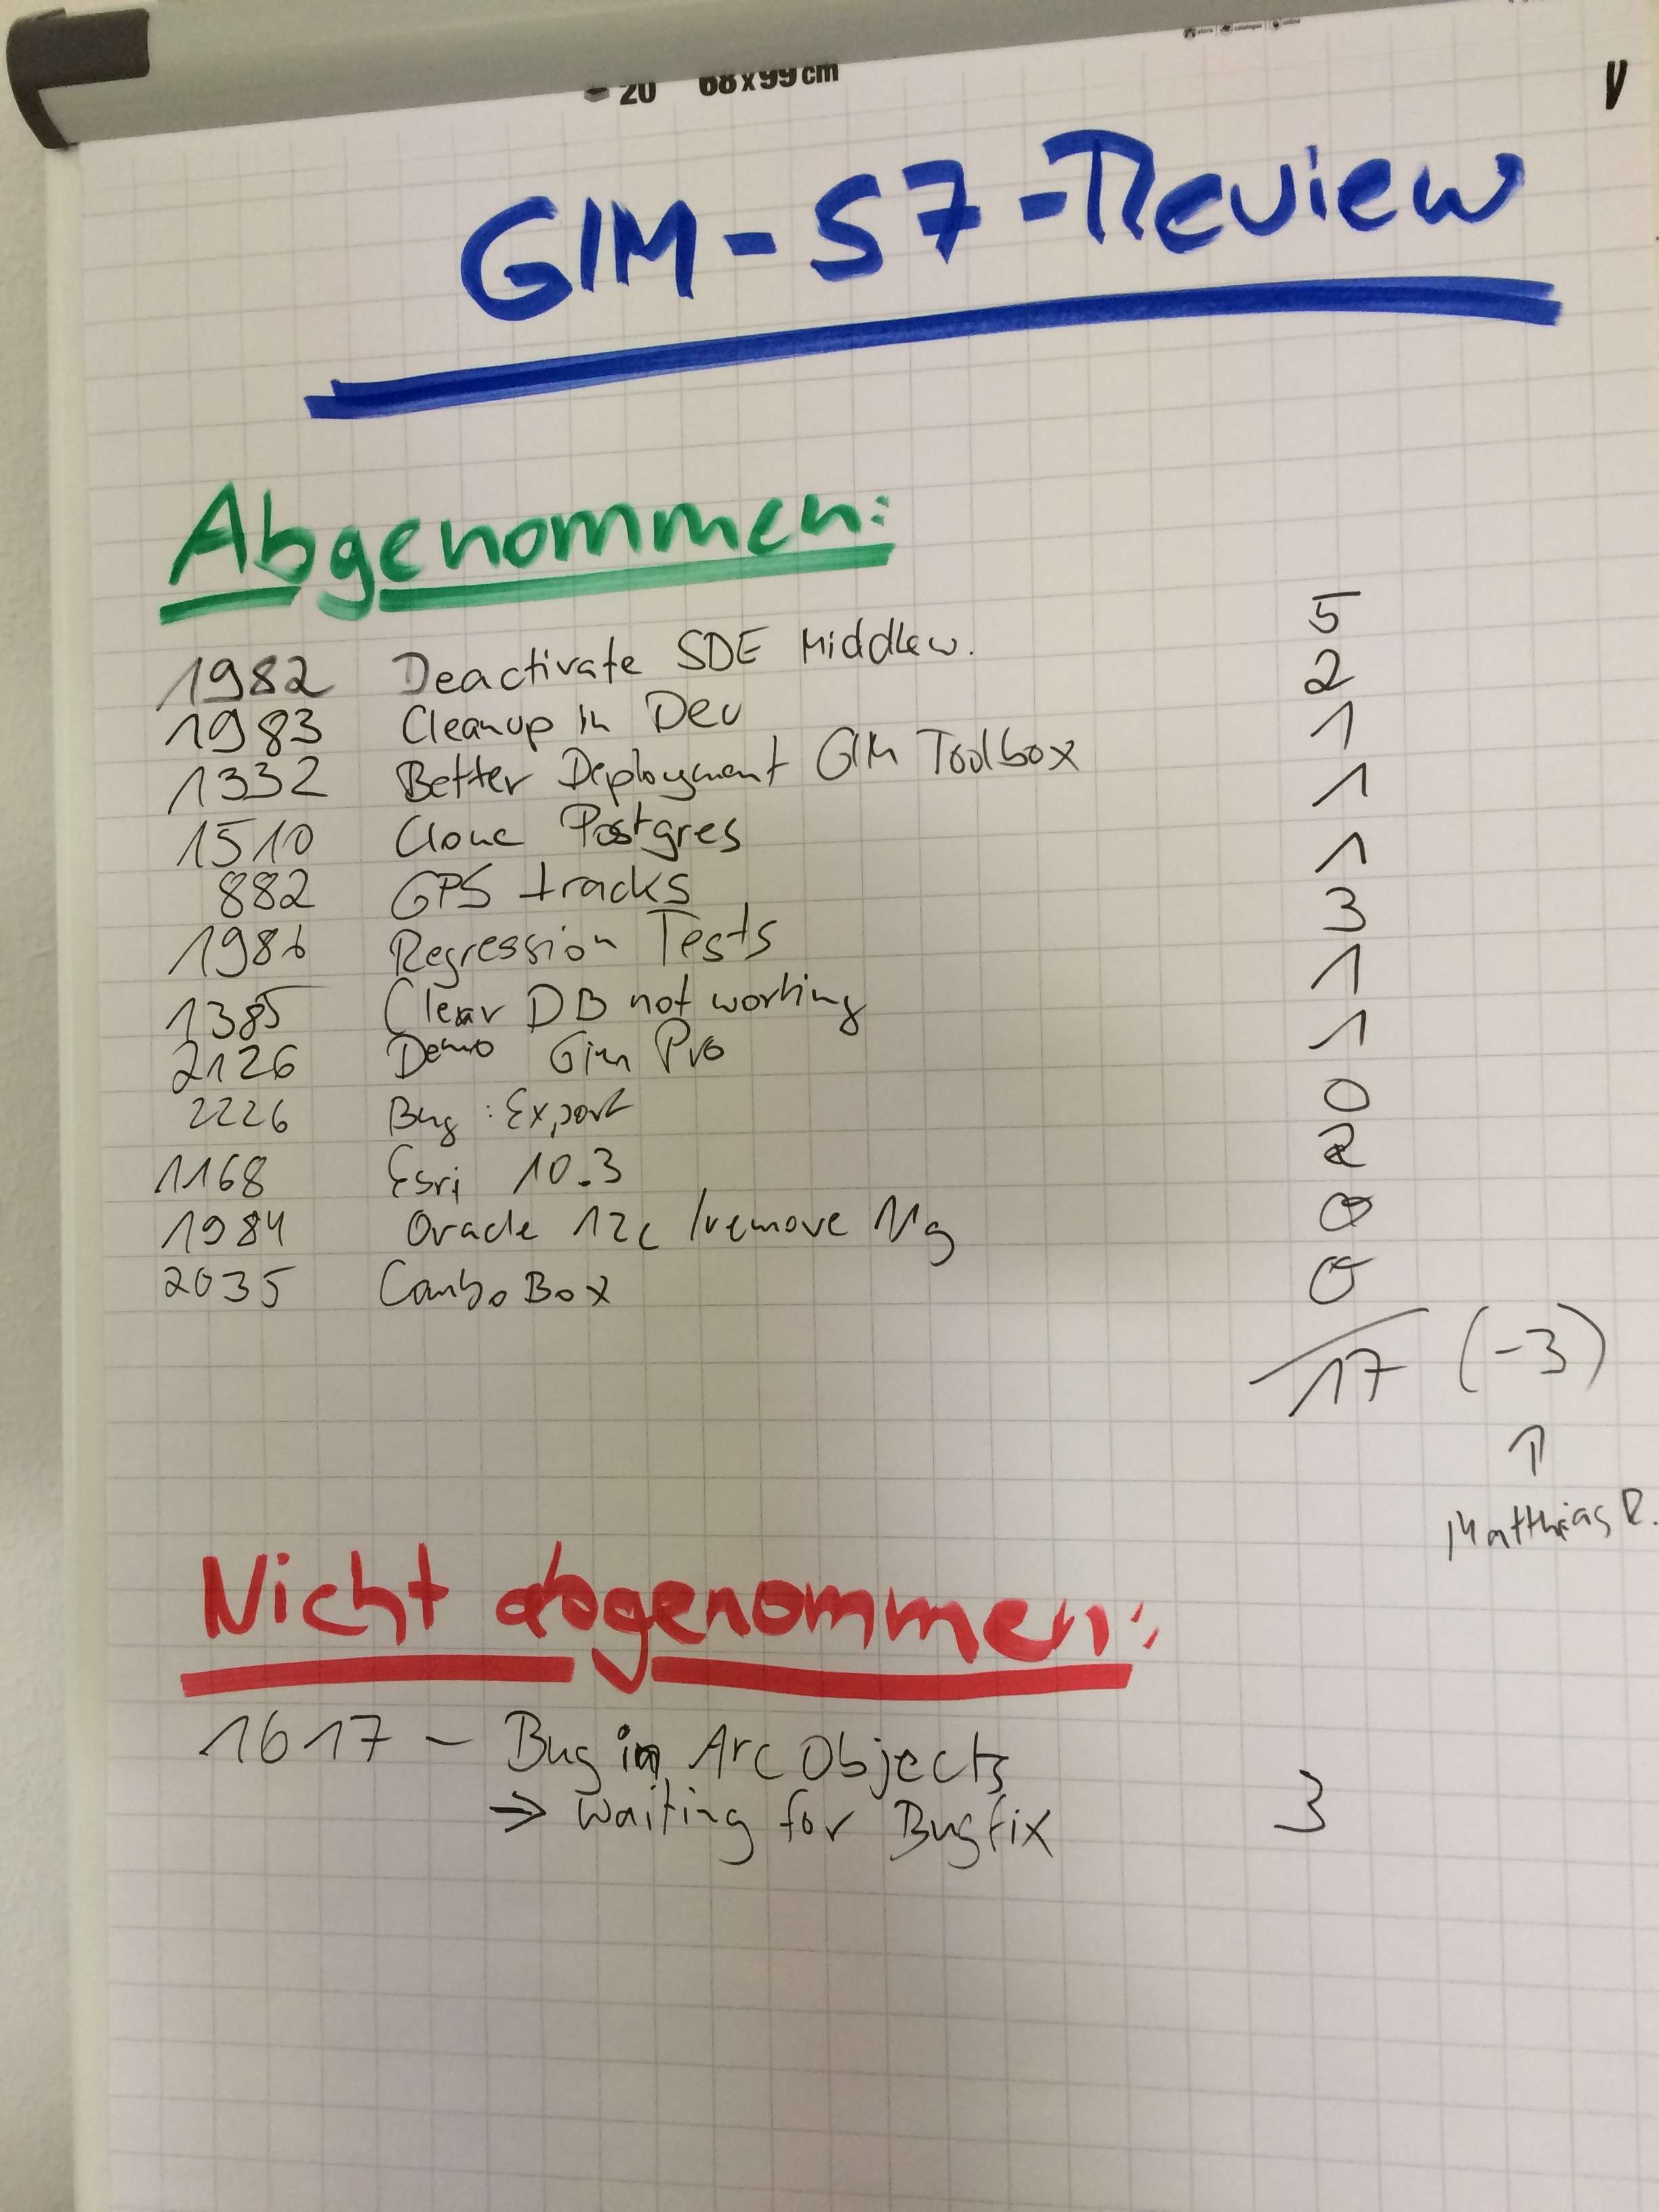 20 68x99cm
GIM-S7-Review
Abgenommen:
1982 Deactivate SDE Middlew. 5
1983 Cleanup in Dev 2
1332 Better Deployment GIM Toolbox 1
1510 Clone Postgres 1
882 GPS tracks 1
1986 Regression Tests 3
1385 Clear DB not working 1
2126 Demo Gim Pro 1
2226 Bug: Export 0
1168 Esri 10.3 2
1984 Oracle 12c /remove 11g 0
2035 ComboBox 0
17 (-3)
↑
Matthias R.
Nicht abgenommen:
1617 - Bug in ArcObjects
⇒ waiting for Bugfix 3